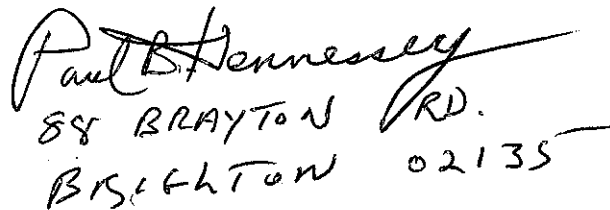 Paul B. Hennessey
88 BRAYTON RD.
BRIGHTON 02135